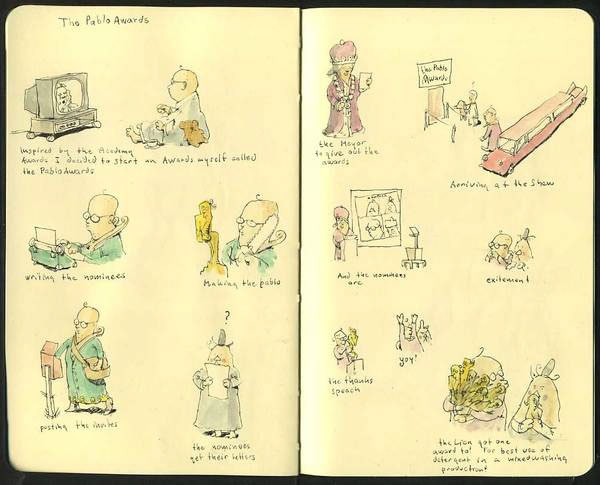 The Pablo Awards
Inspired by the Academy
Awards I decided to start an Awards myself called
the Pablo Awards
writing the nominees
Making the pablo
posting the invites
?
the nominees
get their letters
the Mayor
to give out the
awards
the Pablo
Awards
Arriving at the Show
And the nominees
are
exitement
the thanks
speach
yoy!
the Lion got one
award to! For best use of
detergent in a mixedwashing
production!